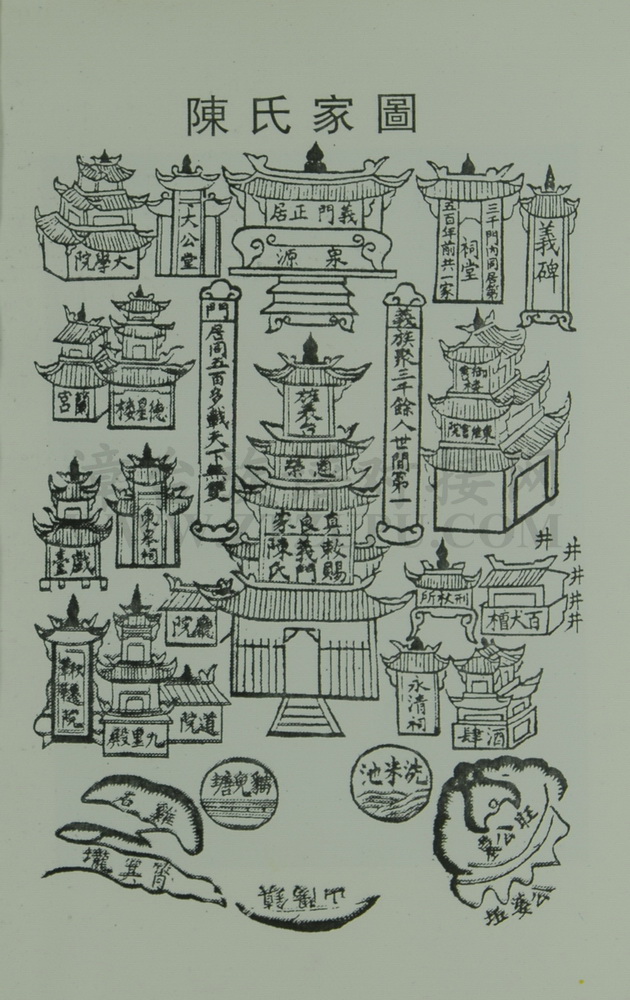 陳氏家圖
大學院
大公堂
義門正居
泉源
三千門內同居第
祠堂
五百年前共一家
義碑
蘭宮
德星樓
門居同五百多載天下無雙
義族聚三千餘人世間第一
御書樓
東佳書院
旌表台
道榮
真良家
敕賜義門陳氏
戲臺
東皋祠
廳院
刑杖所
百犬槽
井
井
井
井
井
鞦韆院
九里殿
道院
永清祠
酒肆
貓兒塘
洗米池
雞石
筲箕壠
旺公
公婆垢